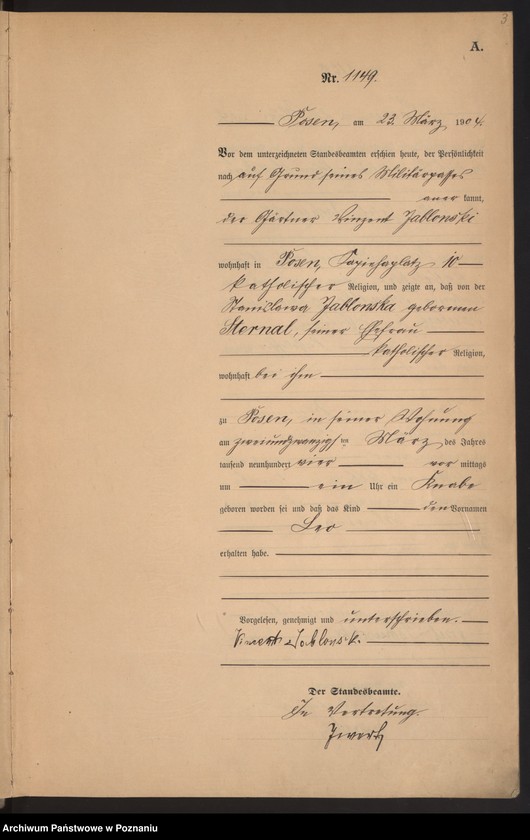 3
A.
Nr. 1149.
Posen, am 23. März 1904.
Vor dem unterzeichneten Standesbeamten erschien heute, der Persönlichkeit
nach auf Grund seines Militärpasses
aner kannt,
der Gärtner Vinzent Jablonski
wohnhaft in Posen, Sapiehaplatz 10
katholischer Religion, und zeigte an, daß von der
Stanislawa Jablonska geborenen
Sternal, seiner Ehefrau
katholischer Religion,
wohnhaft bei ihm
zu Posen, in seiner Wohnung
am zweiundzwanzigsten März des Jahres
tausend neunhundert vier vor mittags
um ein Uhr ein Knabe
geboren worden sei und daß das Kind den Vornamen
Leo
erhalten habe.
Vorgelesen, genehmigt und unterschrieben.
Vincent Jablonski.
Der Standesbeamte.
In Vertretung.
Archiwum Państwowe w Poznaniu